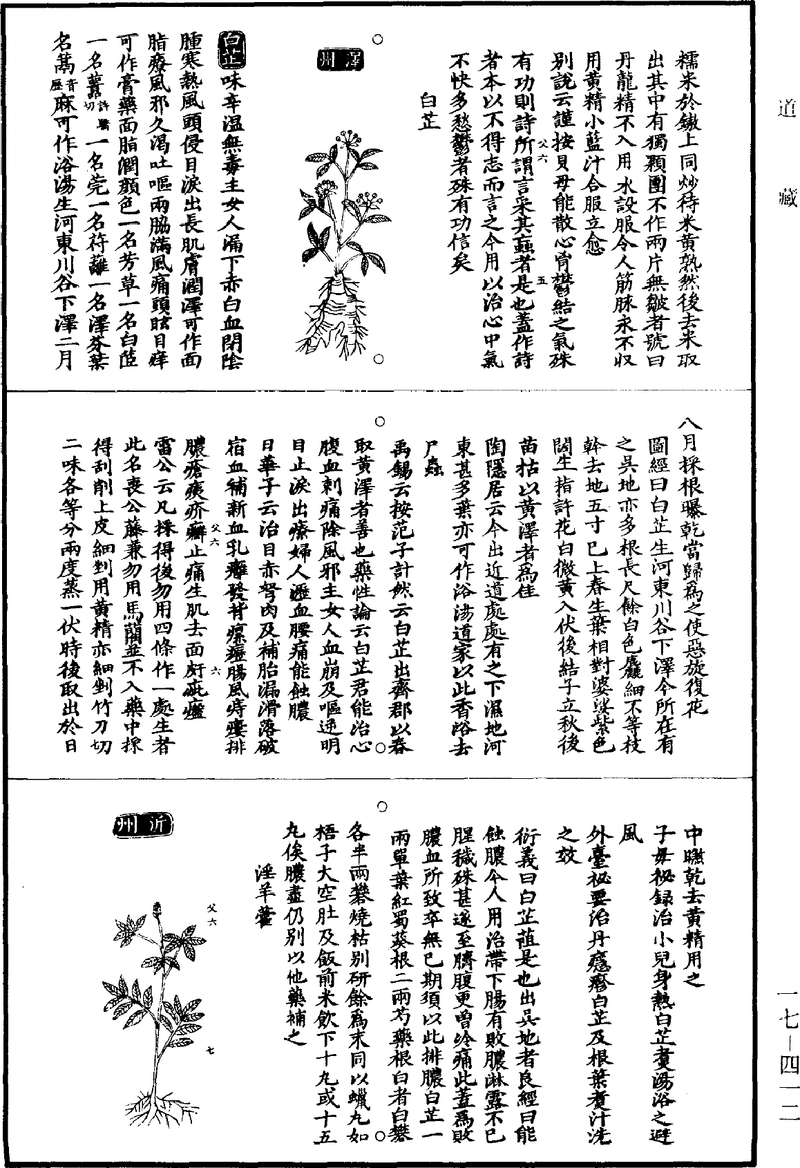 道藏
糯米於鏉上同炒待米黃熟然後去米取
出其中有獨顆團不作兩片無皺者號曰
丹龍精不入用水設服令人筋脉永不収
用黃精小藍汁合服立愈
別說云謹按貝母能散心胷鬱結之氣殊
有功則詩所謂言采其蝱者是也蓋作詩
者本以不得志而言之今用以治心中氣
不快多愁鬱者殊有功信矣
父六
五
白芷
澤州
白芷味辛溫無毒主女人漏下赤白血閉陰
腫寒熱風頭侵目淚出長肌膚潤澤可作面
脂療風邪久渴吐嘔兩脇滿風痛頭眩目痒
可作膏藥面脂潤顏色一名芳草一名白茝
一名䖀許驕切一名莞一名苻蘺一名澤芬葉
名蒚音歷麻可作浴湯生河東川谷下澤二月
八月採根曝乾當歸爲之使惡旋復花
圖經曰白芷生河東川谷下澤今所在有
之吳地亦多根長尺餘白色麤細不等枝
幹去地五寸已上春生葉相對婆娑紫色
闊生指許花白微黃入伏後結子立秋後
苗枯以黃澤者爲佳
陶隱居云今出近道處處有之下濕地河
東甚多葉亦可作浴湯道家以此香浴去
尸蟲
禹錫云按范子計然云白芷出齊郡以春
取黃澤者善也藥性論云白芷君能治心
腹血刺痛除風邪主女人血崩及嘔逆明
目止淚出療婦人瀝血腰痛能蝕膿
日華子云治目赤努肉及補胎漏滑落破
宿血補新血乳癰發背瘰癧腸風痔瘻排
膿瘡痍疥癬止痛生肌去面皯疵瘢
父六
六
雷公云凡採得後勿用四條作一處生者
此名喪公藤兼勿用馬蘭並不入藥中採
得刮削上皮細剉用黃精亦細剉竹刀切
二味各等分兩度蒸一伏時後取出於日
中㬠乾去黃精用之
子母祕録治小兒身熱白芷煑湯浴之避
風
外臺祕要治丹癮瘮白芷及根葉煑汁洗
之效
衍義曰白芷茝是也出吳地者良經曰能
蝕膿今人用治帶下腸有敗膿淋露不已
腥穢殊甚遂至臍腹更增冷痛此蓋爲敗
膿血所致卒無已期須以此排膿白芷一
兩單葉紅蜀葵根二兩芍藥根白者白礬
各半兩礬燒枯別研餘爲末同以蠟丸如
梧子大空肚及飯前米飲下十丸或十五
丸俟膿盡仍別以他藥補之
淫羊藿
父六
七
沂州
一七—四一二